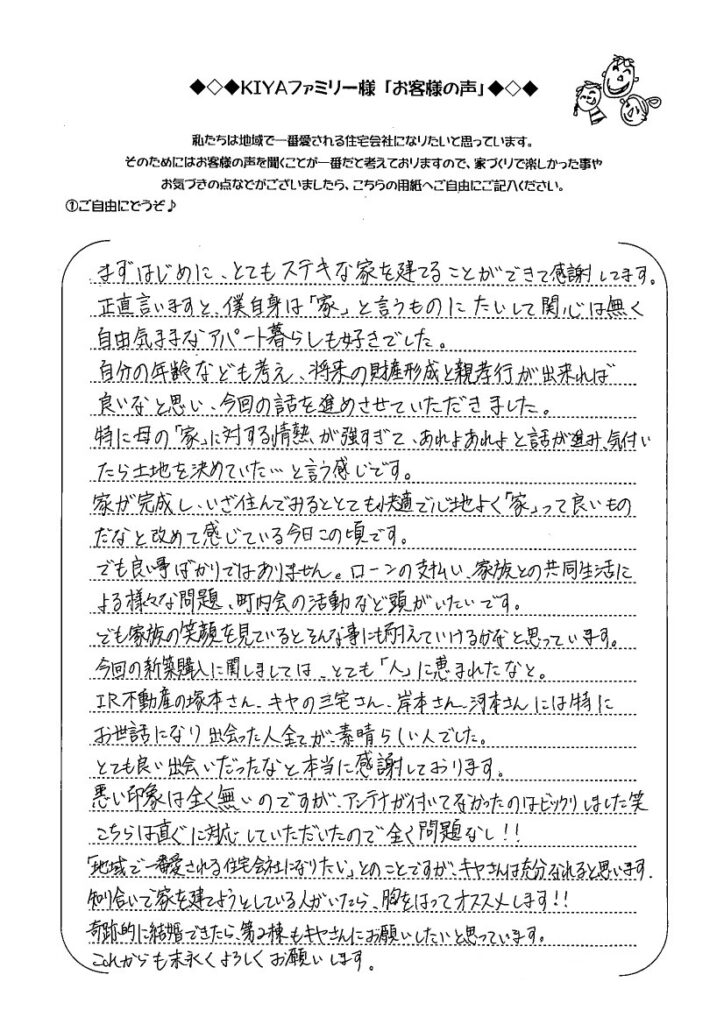 ◆◇◆KIYAファミリー様「お客様の声」◆◇◆
私たちは地域で一番愛される住宅会社になりたいと思っています。
そのためにはお客様の声を聞くことが一番だと考えておりますので、家づくりで楽しかった事や
お気づきの点などがございましたら、こちらの用紙へご自由にご記入ください。
①ご自由にどうぞ♪
まずはじめに、とてもステキな家を建てることができて感謝してます。
正直言いますと、僕自身は「家」と言うものにたいして関心は無く
自由気ままなアパート暮らしも好きでした。
自分の年齢なども考え、将来の財産形成と親孝行が出来れば
良いなと思い、今回の話を進めさせていただきました。
特に母の「家」に対する情熱が強すぎて、あれよあれよと話が進み、気付い
たら土地を決めていた…と言う感じです。
家が完成し、いざ住んでみるととても快適で心地よく「家」って良いもの
だなと改めて感じている今日この頃です。
でも良い事ばかりではありません。ローンの支払い、家族との共同生活に
よる様々な問題、町内会の活動など頭がいたいです。
でも家族の笑顔を見ているとそんな事にも耐えていけるかなと思っています。
今回の新築購入に関しましては、とても「人」に恵まれたなと。
IR不動産の塚本さん、キヤの三宅さん、岸本さん、河本さんには特に
お世話になり出会った人全てが、素晴らしい人でした。
とても良い出会いだったなと本当に感謝しております。
悪い印象は全く無いのですが、アンテナが付いてなかったのはビックリしました笑
こちらは直ぐに対応していただいたので全く問題なし!!
「地域で一番愛される住宅会社になりたい」とのことですが、キヤさんは充分なれると思います.
知り合いで家を建てようとしている人がいたら、胸をはってオススメします!!
奇跡的に結婚できたら、第2棟もキヤさんにお願いしたいと思っています。
これからも末永くよろしくお願いします。